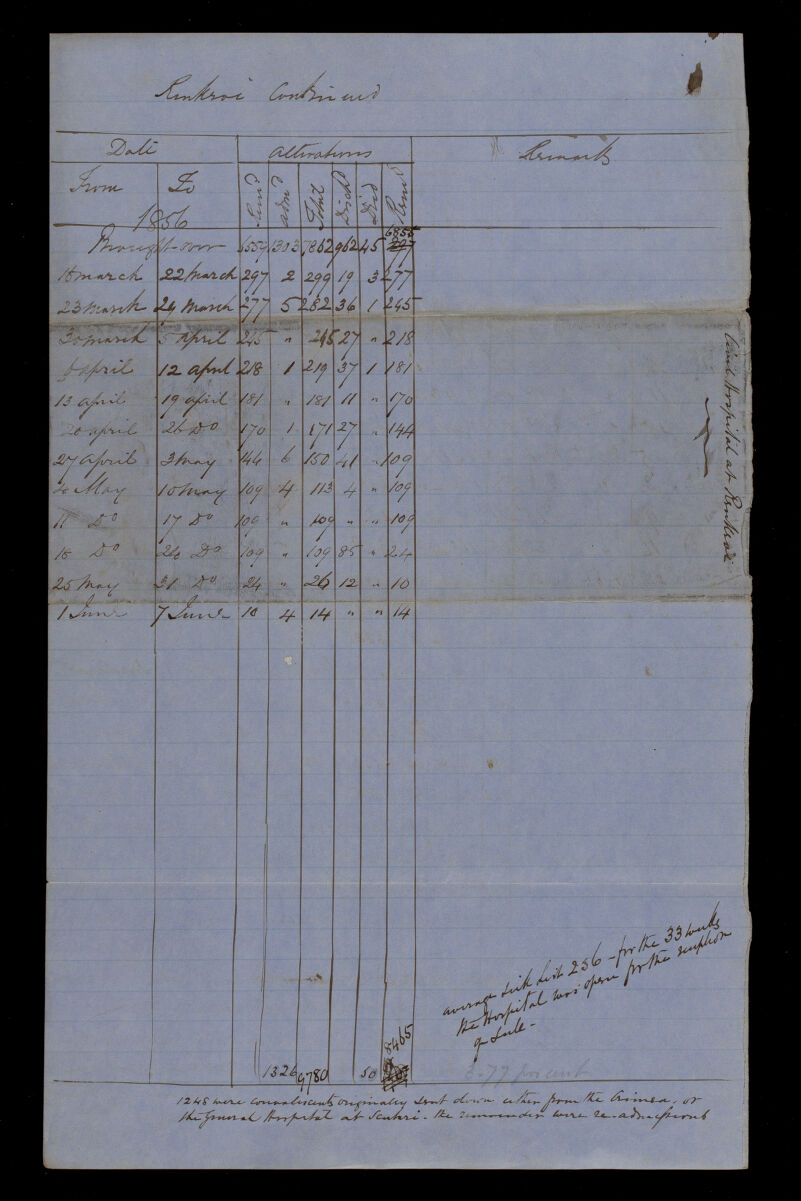 Renkioi Continued
Date Alterations Remarks
From To Rem'd Adm'd Total Disch'd Died Rem'd
1856
Brought over 6559 1303 7862 962 45 6855
16 march 22 March 297 2 299 19 3 277
23 March 29 March 277 5 282 36 1 245
30 march 5 April 245 " 245 27 " 218
6 april 12 april 218 1 219 37 1 181
13 april 19 april 181 " 181 11 " 170
20 april 26 Do 170 1 171 27 " 144
27 April 3 May 144 6 150 41 " 109
4 May 10 May 109 4 113 4 " 109
11 Do 17 Do 109 " 109 " " 109
18 Do 24 Do 109 " 109 85 " 24
25 May 31 Do 24 " 24 12 " 10
1 June 7 June 10 4 14 " " 14
Civil Hospital at Renkioi
average Sick List 256 - for the 33 weeks
the Hospital was open for the reception
of Sick -
1326 9780 50 8465
3.77 per cent
1248 were convalescents originally sent down either from the Crimea, or
the General Hospital at Scutari - the remainder were re-admissions